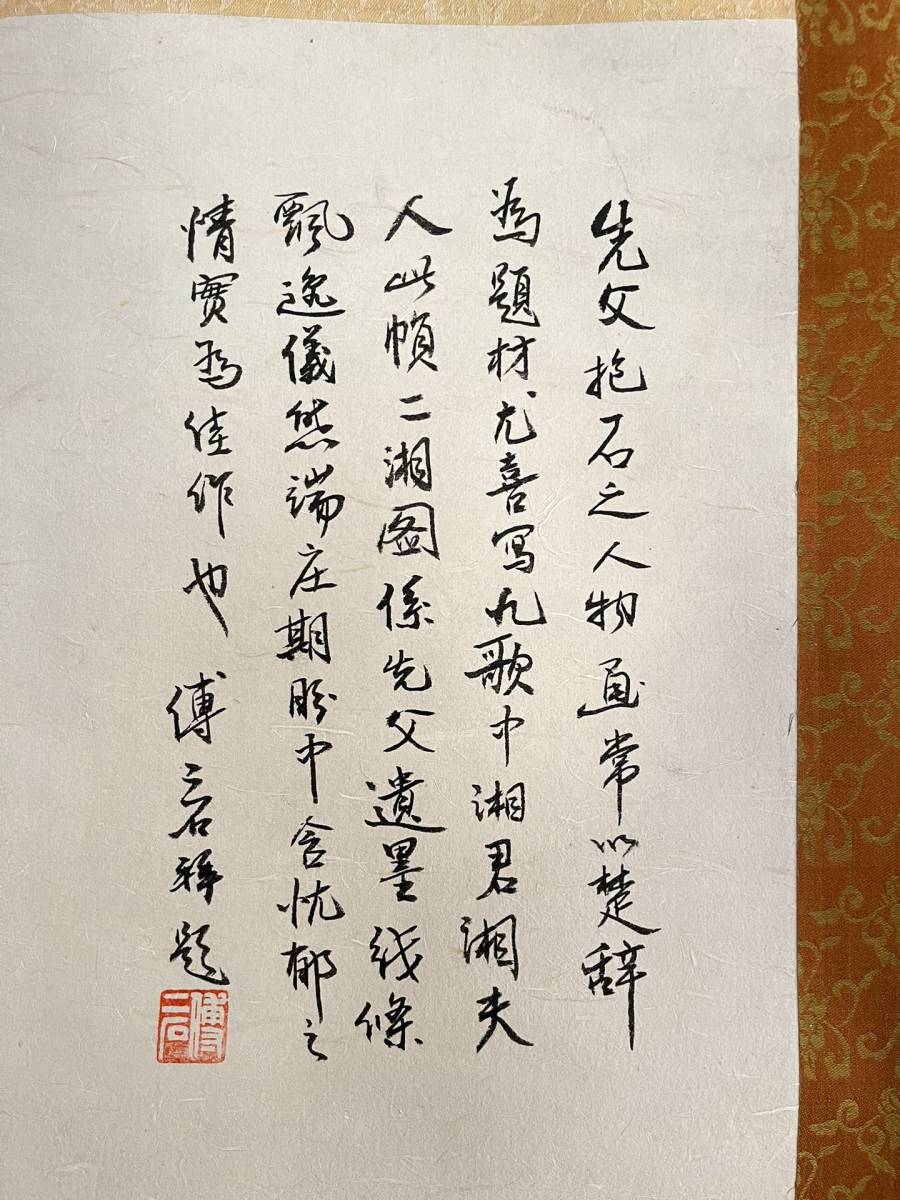 先父抱石之人物通常以楚辞
为題材尤喜写九歌中湘君湘夫
人此幀二湘图係先父遺墨线條
飄逸儀態端庄期盼中含忧郁之
情实为佳作也 傅二石拜题
傅二石